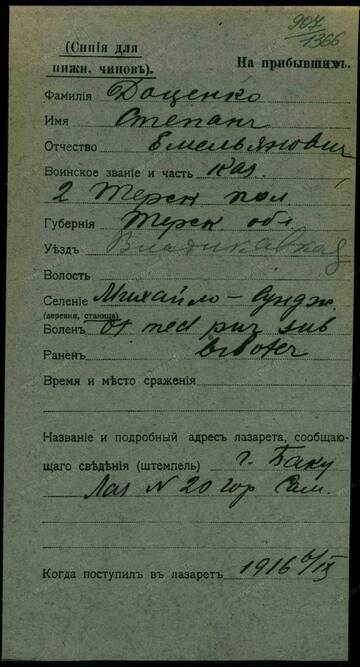 907
1366
(Синія для
нижн. чиновъ).
На прибывшихъ.
Фамилія Доценко
Имя Степанъ
Отчество Емельянович
Воинское званіе и часть каз.
2 Терск пол
Губернія Терск обл
Уѣздъ Владикавказ
Волость
Селеніе Михайло-Сундж.
(деревня, станица)
Боленъ Ot med pur sub
Раненъ
Время и мѣсто сраженія
Названіе и подробный адресъ лазарета, сообщаю-
щаго свѣдѣнія (штемпель) г. Баку
Лаз N 20 гор Сам.
Когда поступилъ въ лазаретъ 1916 /IX